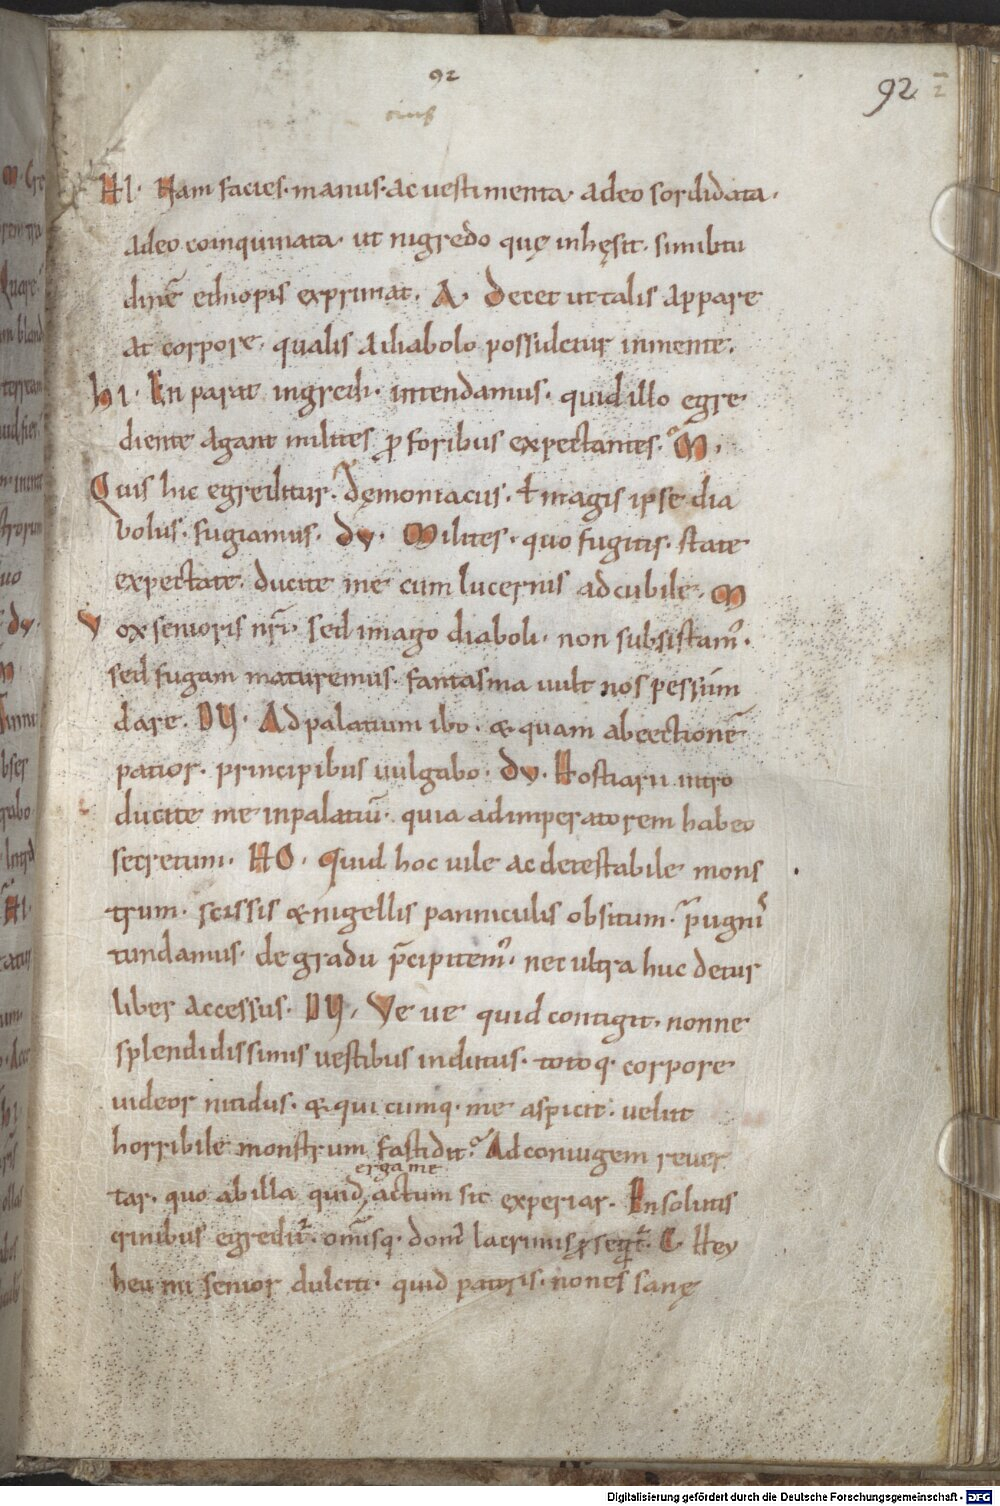 92
92
HI. Nam facies· manus· ac uestimenta· adeo sordidata·
adeo coinquinata· ut nigredo quę inhęsit· similitu
dinē ethiopis exprimat. A. Decet ut talis appare
at corpore· qualis a diabolo possidetur in mente.
hI. En parat ingredi· intendamus· quid illo egre
diente agant milites ꝓ foribus expectantes. M.
Quis hic egreditur. Demoniacus. ł magis ipse dia
bolus· fugiamus. dv. Milites· quo fugitis· state
expectate· ducite me cum lucernis ad cubile. M
Vox senioris nr̄i· sed imago diaboli· non subsistam᾿·
sed fugam maturemus· fantasma uult nos pessum
dare. DV. Ad palatium ibo· & quam abiectionē
patior· principibus uulgabo. dv. Hostiarii intro
ducite me in palatiū· quia ad imperatorem habeo
secretum. HO. Quid hoc uile ac detestabile mons
trum· scissis & nigellis panniculis obsitum· pugnis
tundamus· de gradu p̄cipitem᾿· nec ultra huc detur
liber accessus. DV. Ve ue quid contigit· nonne
splendidissimis uestibus indutus· totoq· corpore
uideor nitidus· & quicumq· me aspicit· uelut
horribile monstrum fastidit. Ad coniugem reuer
erga me
tar· quo ab illa quid actum sit experiar. En solutis
crinibus egreditur· omnisq· dom᾿ lacrimis ꝓsequit᾿. C Hey
heu mi senior dulciti· quid pateris· non es sanę